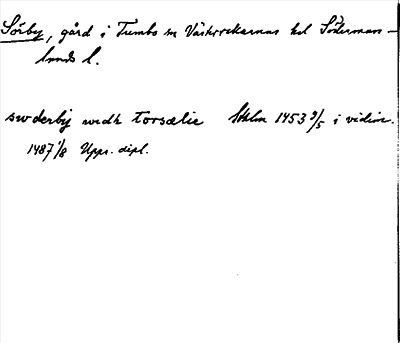 Sörby, gård i Tumbo sn Västerrekarnas hd Söderman-
lands l.
swderby wedh torsælie Sthlm 1453 9/5 i vidim.
1487 1/8 Upps. dipl.